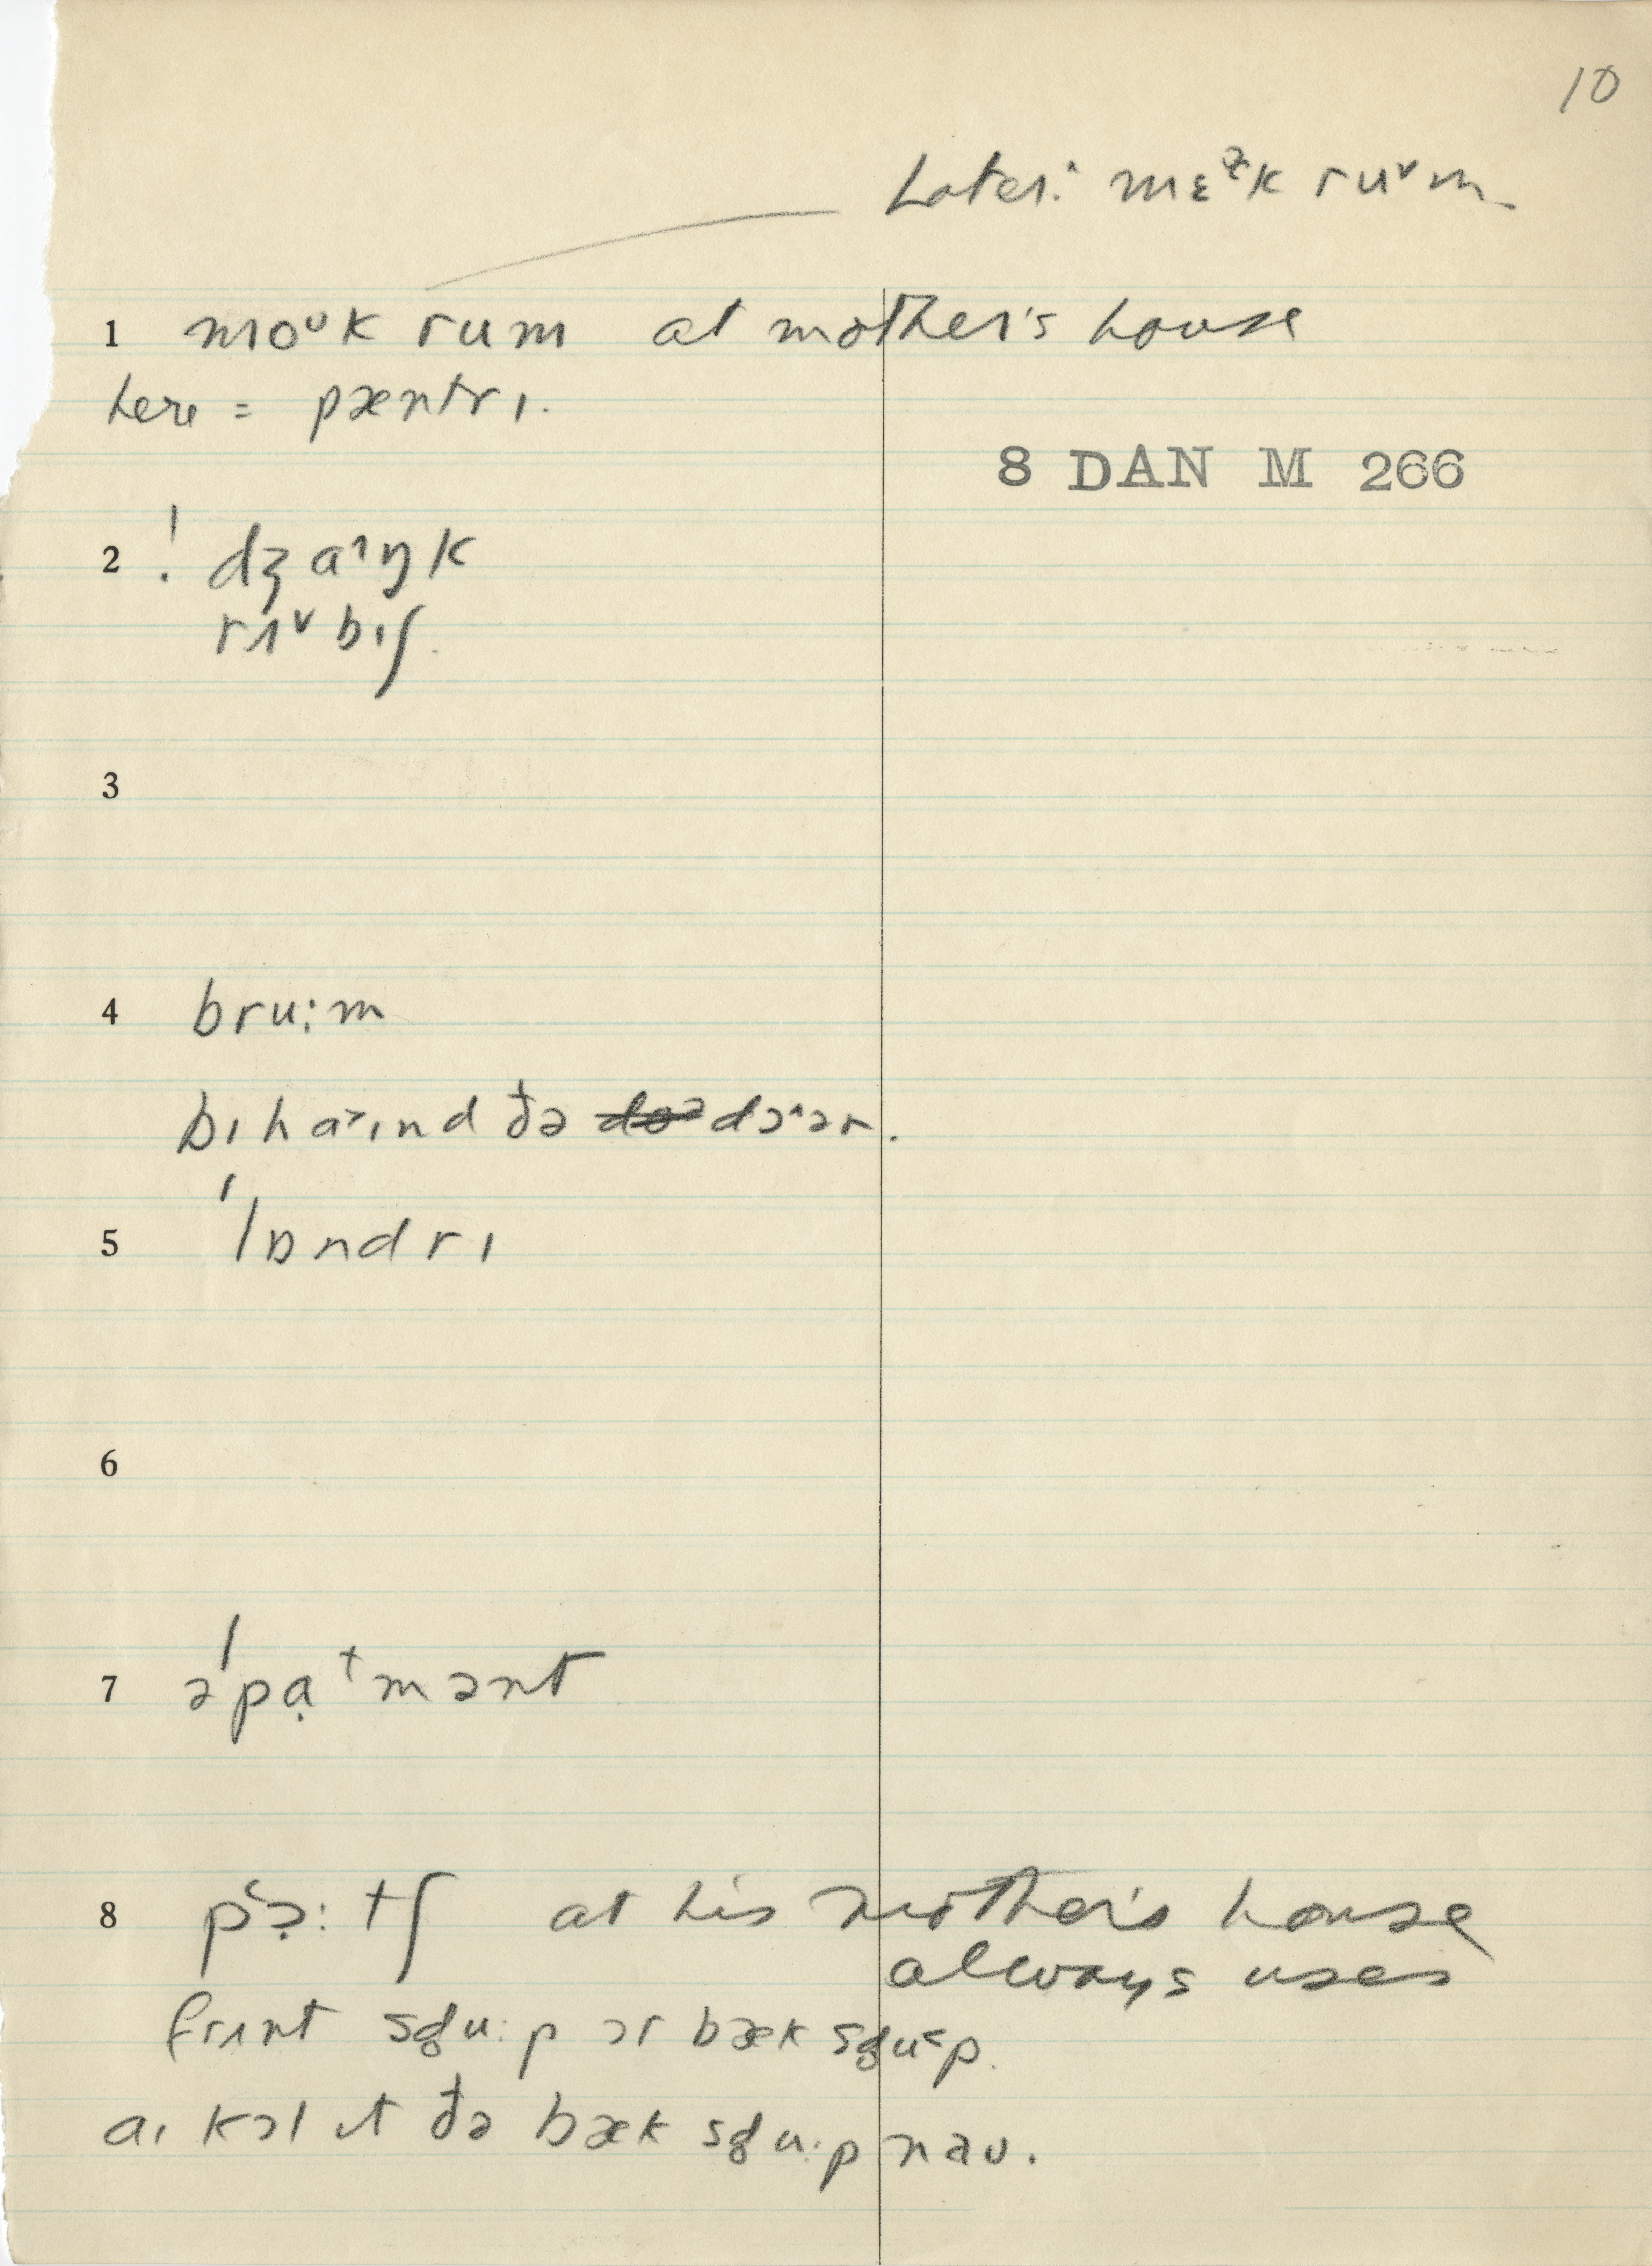 10
Later: mɛᵊ̨k ruᵛm
1 moᵘk rum at mother's house
here = pæntrɪ.
8 DAN M 266
2 ! dʒaˈŋk
rʌᵛbɪʃ.
3
4 bru:m
bɪha˃ɪnd ðə dɔ^ər.
5 ˈlɒndrɪ
6
7 əˈpạᵗmənt
8 pʿɔ̣:tʃ at his mother's house
always uses
frʌnt sgu:p ɔr bæk sgu˂p.
aɪ kɔl ɪt ðə bæk sgu:p naʊ.